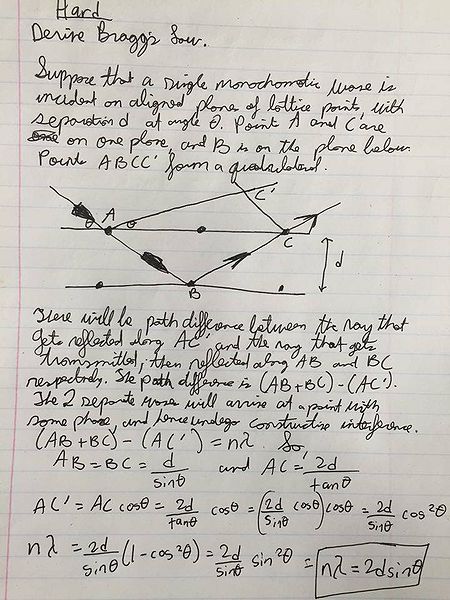 Hard
Derive Bragg's Law.
Suppose that a single monochromatic wave is
incident on aligned plane of lattice points, with
separation d at angle θ. Point A and C are
on one plane, and B is on the plane below.
Points ABCC' form a quadrilateral.
C'
A
θ
θ
C
d
B
There will be path difference between the ray that
gets reflected along AC' and the ray that gets
transmitted, then reflected along AB and BC
respectively. The path difference is (AB+BC)-(AC').
The 2 separate waves will arrive at a point with
same phase, and hence undergo constructive interference.
(AB+BC) - (AC') = nλ. So,
AB = BC = d/sinθ and AC = 2d/tanθ
AC' = AC cosθ = 2d/tanθ cosθ = (2d/sinθ cosθ) cosθ = 2d/sinθ cos²θ
nλ = 2d/sinθ (1-cos²θ) = 2d/sinθ sin²θ = nλ = 2d sinθ